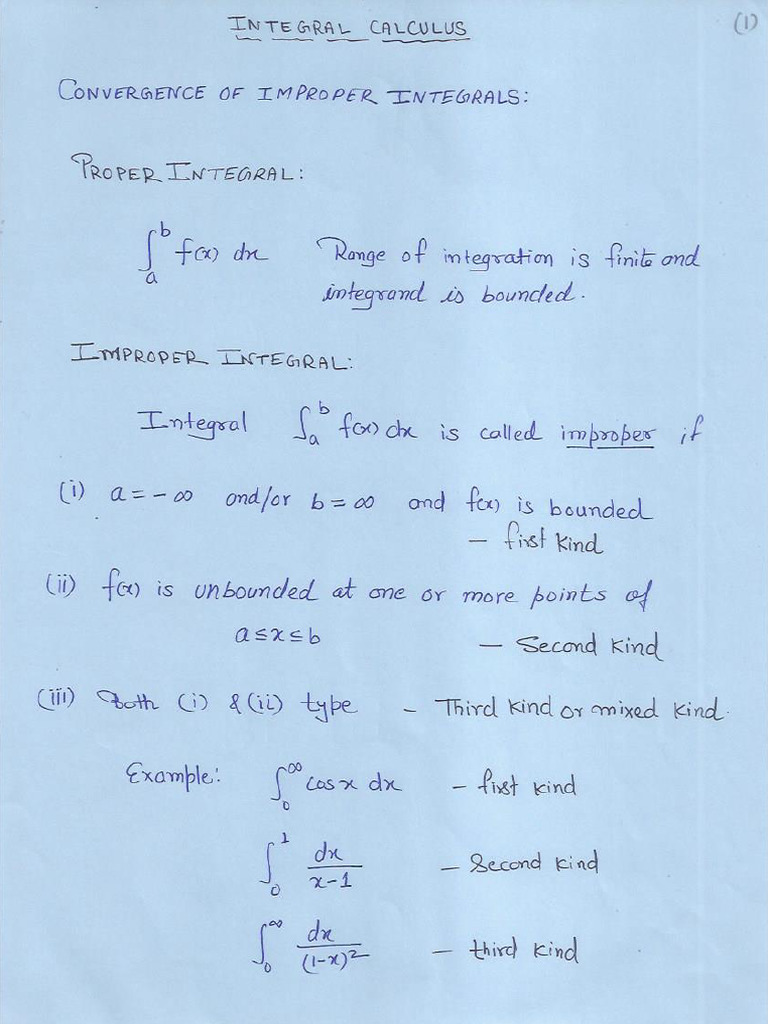 INTEGRAL CALCULUS (1)
CONVERGENCE OF IMPROPER INTEGRALS:
PROPER INTEGRAL:
∫_a^b f(x) dx Range of integration is finite and
integrand is bounded.
IMPROPER INTEGRAL:
Integral ∫_a^b f(x) dx is called improper if
(i) a = -∞ and/or b = ∞ and f(x) is bounded
– first kind
(ii) f(x) is unbounded at one or more points of
a ≤ x ≤ b – Second kind
(iii) Both (i) & (ii) type – Third kind or mixed kind.
Example: ∫_0^∞ cos x dx – first kind
∫_0^1 dx/(x-1) – Second kind
∫_0^∞ dx/(1-x)^2 – third kind